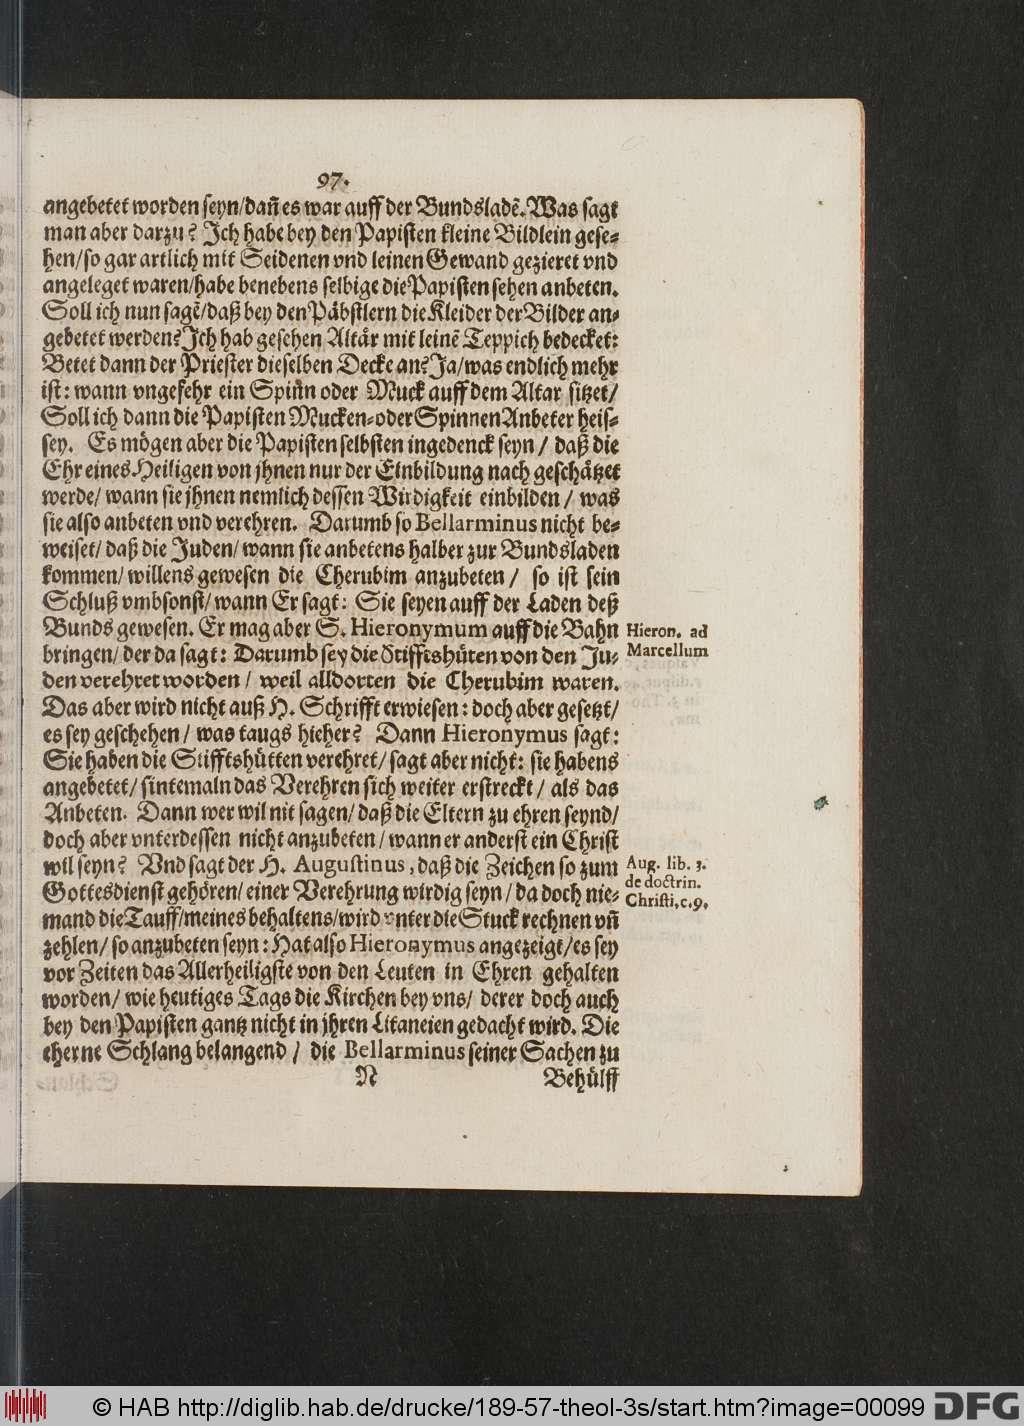 97.
angebetet worden seyn/dañ es war auff der Bundsladẽ. Was sagt
man aber darzu? Ich habe bey den Papisten kleine Bildlein gese-
hen/so gar artlich mit Seidenen vnd leinen Gewand gezieret vnd
angeleget waren/habe benebens selbige die Papisten sehen anbeten.
Soll ich nun sagẽ/daß bey den Päbstlern die Kleider der Bilder an-
gebetet werden? Ich hab gesehen Altär mit leinẽ Teppich bedecket:
Betet dann der Priester dieselben Decke an? Ja/was endlich mehr
ist: wann vngefehr ein Spiñn oder Muck auff dem Altar sitzet/
Soll ich dann die Papisten Mucken-oder Spinnen Anbeter heis-
sey. Es mögen aber die Papisten selbsten ingedenck seyn / daß die
Ehr eines Heiligen von jhnen nur der Einbildung nach geschätzet
werde/ wann sie jhnen nemlich dessen Wirdigkeit einbilden / was
sie also anbeten vnd verehren. Darumb so Bellarminus nicht be-
weiset/ daß die Juden/ wann sie anbetens halber zur Bundsladen
kommen/ willens gewesen die Cherubim anzubeten / so ist sein
Schluß vmbsonst/ wann Er sagt: Sie seyen auff der Laden deß
Bunds gewesen. Er mag aber S. Hieronymum auff die Bahn
Hieron. ad
Marcellum
bringen/ der da sagt: Darumb sey die Stifftshüten von den Ju-
den verehret worden / weil alldorten die Cherubim waren.
Das aber wird nicht auß H. Schrifft erwiesen: doch aber gesetzt/
es sey geschehen / was taugs hieher? Dann Hieronymus sagt:
Sie haben die Stifftshütten verehret/ sagt aber nicht: sie habens
angebetet/ sintemaln das Verehren sich weiter erstreckt / als das
Anbeten. Dann wer wil nit sagen/ daß die Eltern zu ehren seynd/
doch aber vnterdessen nicht anzubeten / wann er anderst ein Christ
wil seyn? Vnd sagt der H. Augustinus, daß die Zeichen so zum
Aug. lib. 3.
de doctrin.
Christi, c. 9.
Gottesdienst gehören/ einer Verehrung wirdig seyn / da doch nie-
mand die Tauff/meines behaltens/wird vnter die Stuck rechnen vñ
zehlen/ so anzubeten seyn: Hat also Hieronymus angezeigt/es sey
vor Zeiten das Allerheiligste von den Leuten in Ehren gehalten
worden/ wie heutiges Tags die Kirchen bey vns/ derer doch auch
bey den Papisten gantz nicht in jhren Litaneien gedacht wird. Die
eherne Schlang belangend / die Bellarminus seiner Sachen zu
N
Behülff
© HAB http://diglib.hab.de/drucke/189-57-theol-3s/start.htm?image=00099
DFG